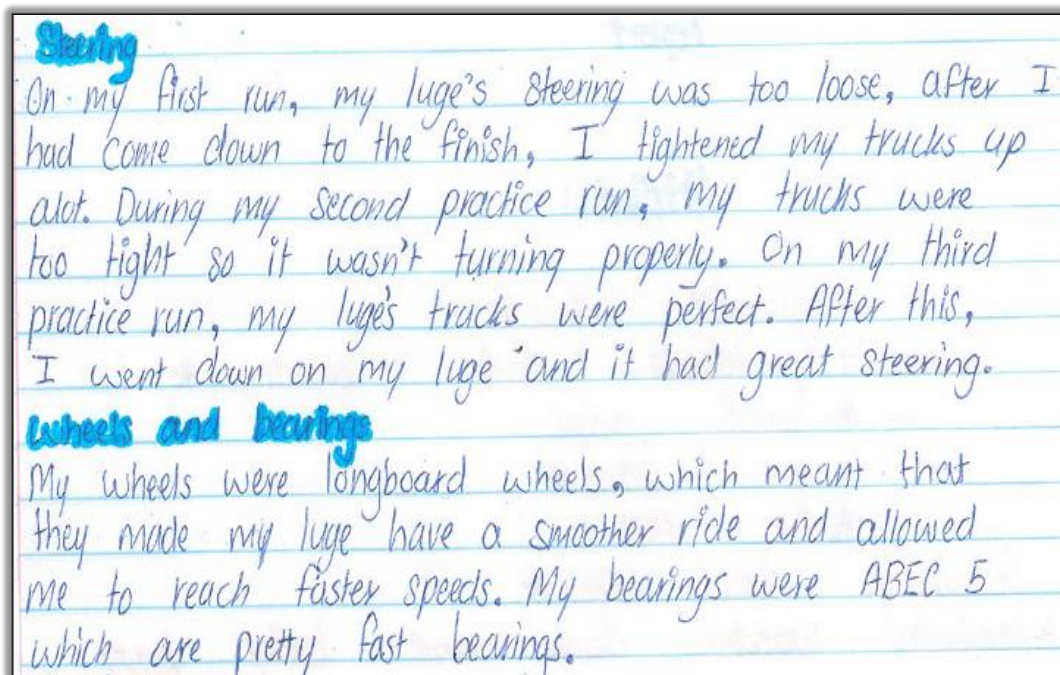 Steering
On my first run, my luge's steering was too loose, after I
had come down to the finish, I tightened my trucks up
alot. During my second practice run, my trucks were
too tight so it wasn't turning properly. On my third
practice run, my luge's trucks were perfect. After this,
I went down on my luge and it had great steering.
Wheels and bearings
My wheels were longboard wheels, which meant that
they made my luge have a smoother ride and allowed
me to reach faster speeds. My bearings were ABEC 5
which are pretty fast bearings.